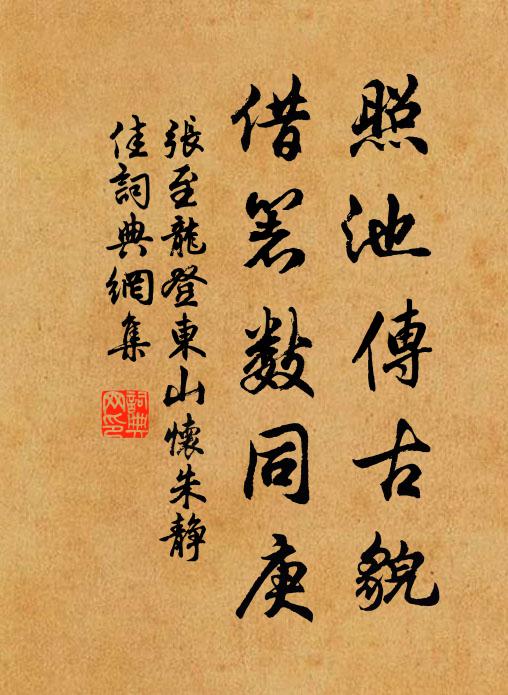 照池傳古貌
借箸數同庚
張至龍登東山懷朱静
佳詞典網集
詞典网印